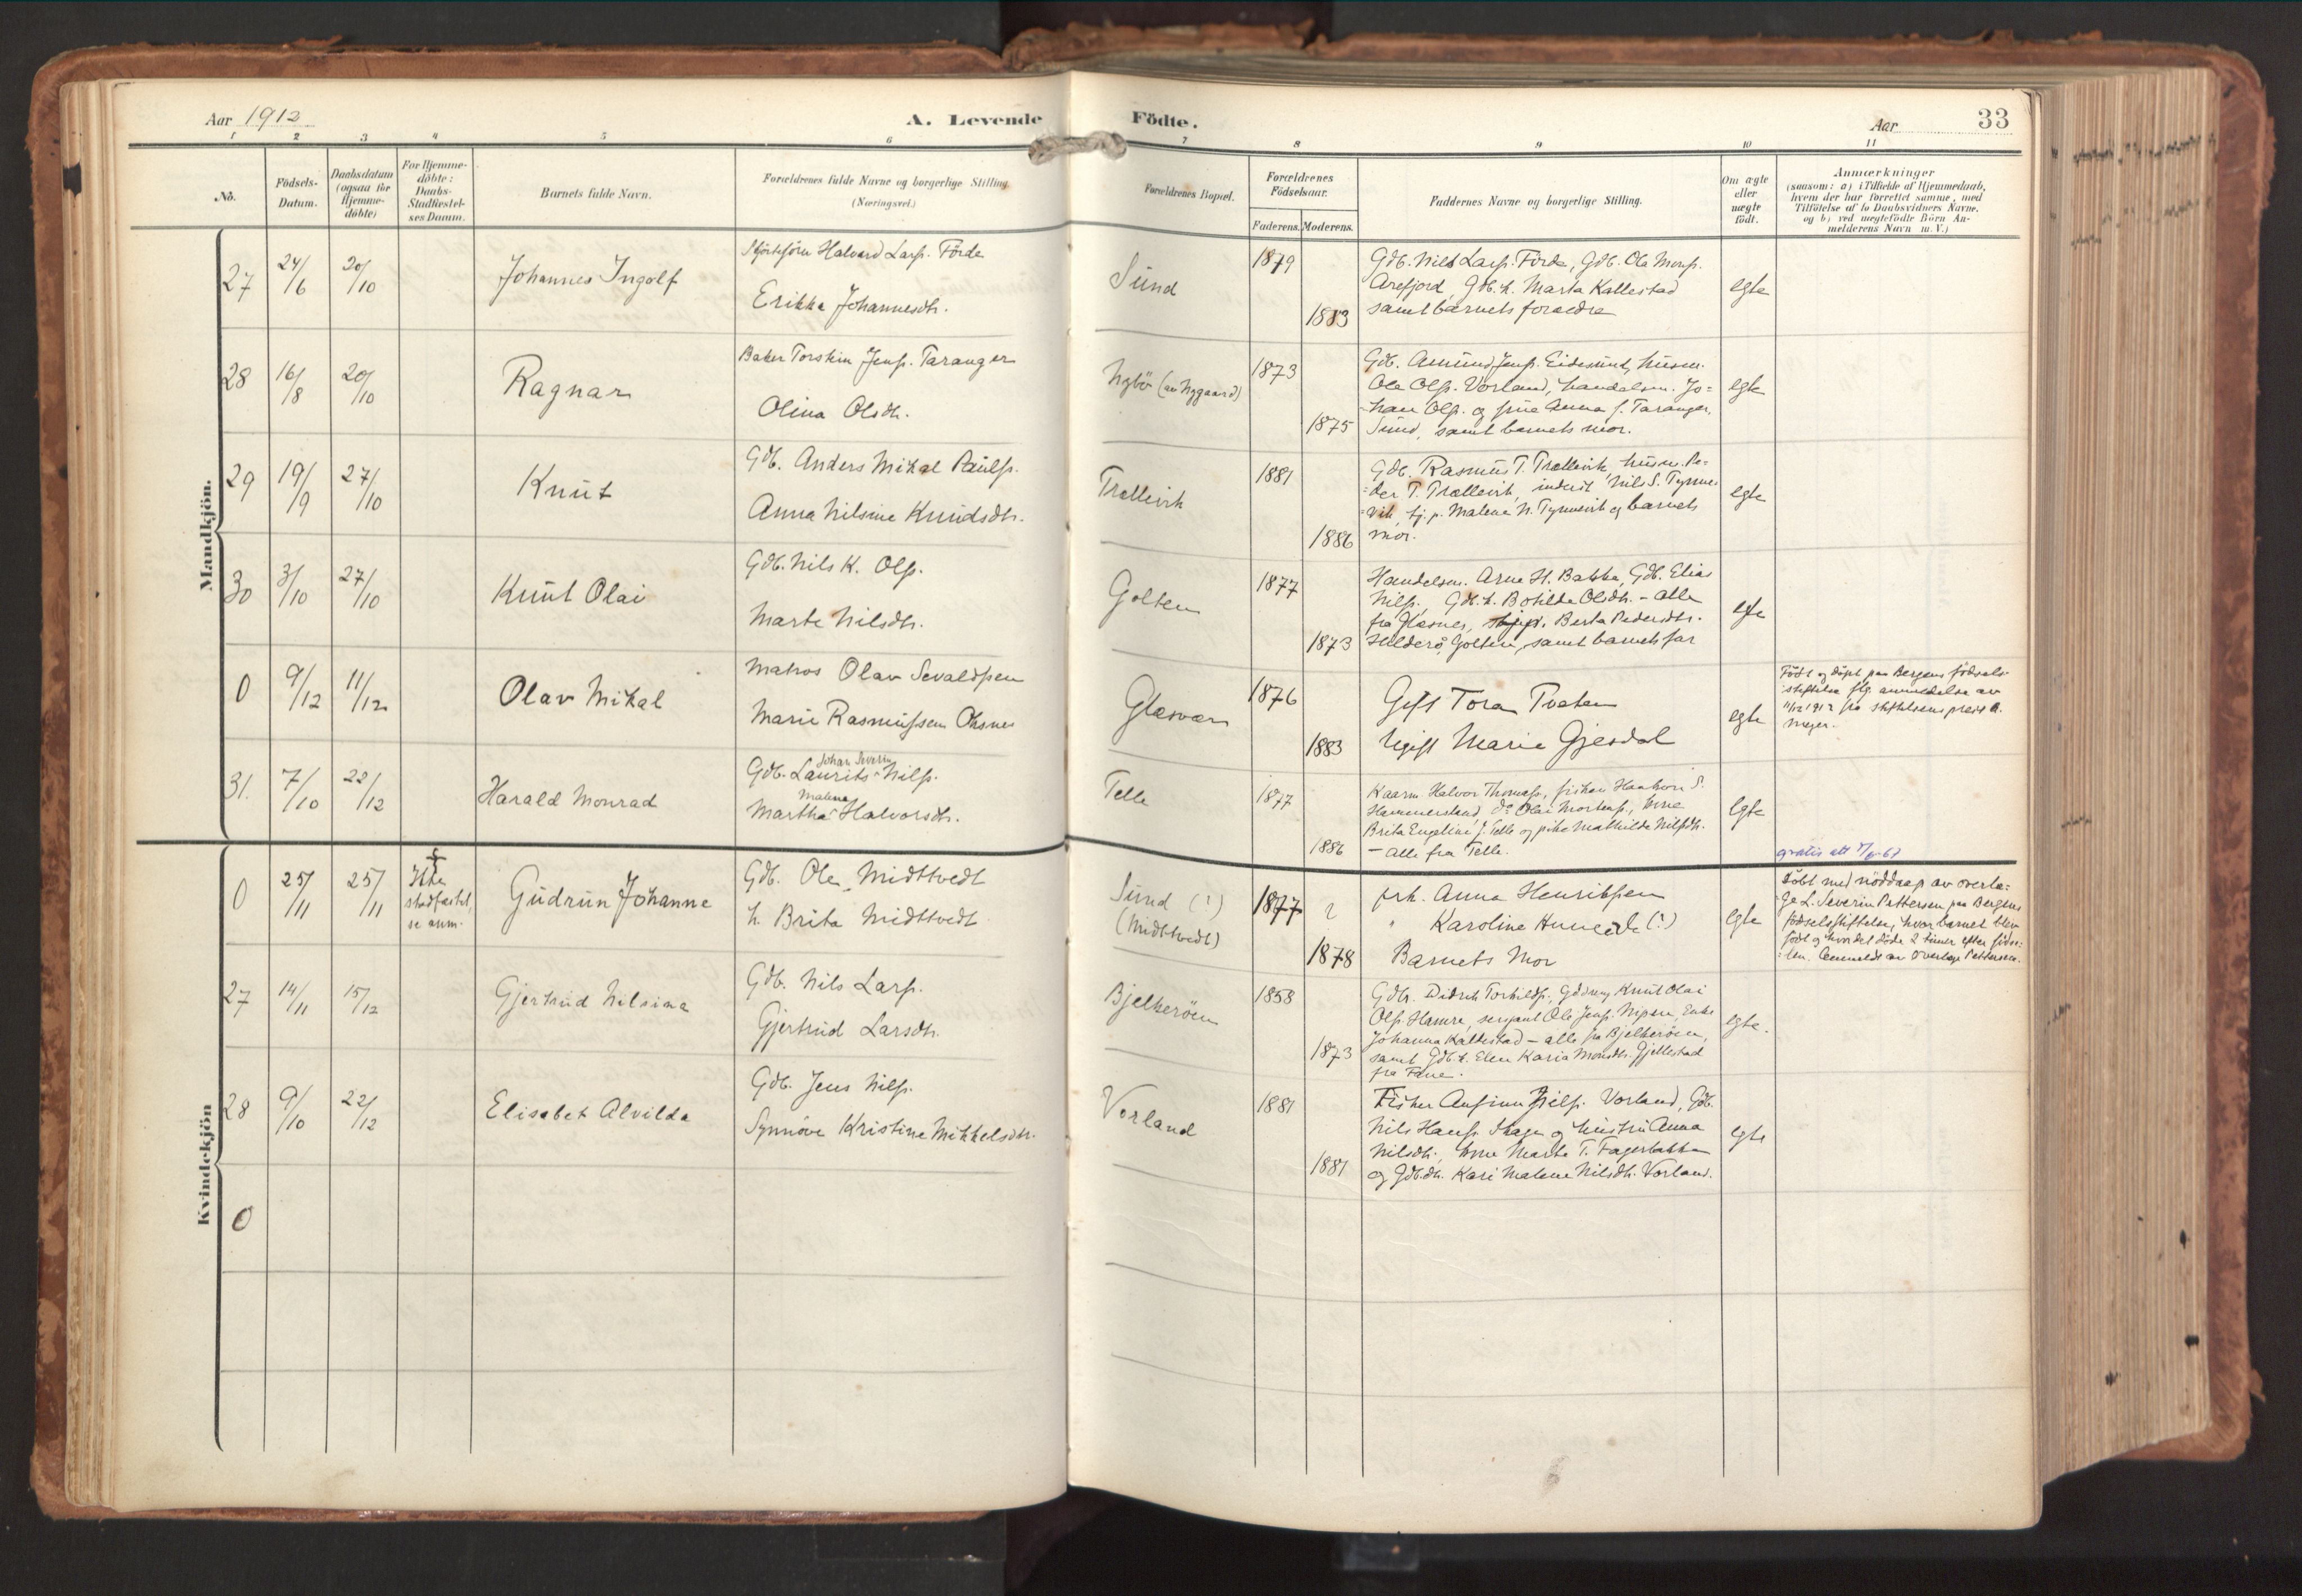 Aar 1912
A. Levende
Födte.
Aar
33
1 2 3 4 5 6 7 8 9 10 11
No.
Födsels-
Datum.
Daabsdatum
(ogsaa for
Hjemme-
döbte)
For Hjemme-
döbte:
Daabs-
Stadfæstel-
ses Datum.
Barnets fulde Navn.
Forældrenes fulde Navne og borgerlige Stilling.
(Næringsvei.)
Forældrenes Bopæl.
Forældrenes
Födselsaar.
Faderens. Moderens.
Faddernes Navne og borgerlige Stilling.
Om ægte
eller
uægte
födt.
Anmærkninger
(saasom: a) i Tilfælde af Hjemmedaab,
hvem der har forrettet samme, med
Tilföielse af to Daabsvidners Navne,
og b) ved uægtefödte Börn An-
melderens Navn m. V.)
Mandkjön.
27 24/6 20/10 Johannes Ingolf
Halvard Larss. Förde
Erikka Johannesdtr.
Sund
1879
1883
Gdb. Nils Larss. Förde, Gdb. Ola Monss.
Arefjord, Gdb.h. Marta Kallestad
samt barnets forældre
egte
28 16/8 20/10 Ragnar
Baker Torstein Jenss. Taranger
Olina Olsdtr.
Nybö (av Nygaard)
1873
1875
Gdb. Amund Jenss. Eidesund, husm.
Ole Olss. Vorland, handelsm. Jo=
=han Olss. og frue Anna f. Taranger,
Sund, samt barnets mor.
egte
29 19/9 27/10 Knut
Gdb. Anders Mikal Paulss.
Anna Nilsine Knudsdtr.
Trællevik
1881
1886
Gdb. Rasmus T. Trællevik, husm. Pe=
=der T. Trællevik, inderst Nils S. Tyrne
=vik, tj.p. Malene N. Tyrnevik og barnets
mor.
egte
30 3/10 27/10 Knut Olai
Gdb. Nils K. Olss.
Marte Nilsdtr.
Golten
1877
1873
Handelsm. Arne H. Bakka, Gdb. Elias
Nilss., Gdb.h. Botilda Olsdtr. - alle
fra Glesnes, Berta Pedersdtr.
Golten, samt barnets far
egte
0 9/12 11/12 Olav Mikal
Matros Olav Sevaldsen
Marie Rasmussen Oksnes
Glesvær
1876
1883
Gift Tora Tveten
Ugift Marie Gjesdal
egte
Födt og döpt paa Bergens födsels-
stiftelse flg. anmeldelse av
11/12 1912 fra stiftelsens prest A.
Meyer.
31. 7/10 22/12 Harald Monrad
Johan Severin
Gdb. Laurits Nilss.
Malena
Martha Halvorsdtr.
Telle
1877
1886
Kaarm. Halvor Thomass., fisker Haakon S.
Hammersland, do Olai Mortens.,
Brita Engeline f. Telle og pike Mathilde Nilsdtr.
- alle fra Telle.
egte
gratis att
Kvindekjön
0 25/11 25/11
Ikke
stadfæstet,
se anm.
Gudrun Johanne
Gdb. Ole Midttvedt
h. Brita Midttvedt
Sund (!)
(Midttvedt)
1877 ?
1878
frk. Anna Henriksen
" Karoline
Barnets Mor
egte
Döbt med nöddaap av overlæ=
ge L. Severin Pettersen paa Bergens
födselsstiftelse, hvor barnet blev
födt og hvor det döde 2 timer efter födse=
=len. Anmeldt av overlæge Pettersen.
27 14/11 15/12 Gjertrud Nilsina
Gdb. Nils Larss.
Gjertrud Larsdtr.
Bjelkeröen
1858
1873
Gdb. Didrik Torkildss., Knut Olai
Olss. Hamre, sersjant Ole Jenss. Nipen, Enke
Johanna Kallestad - alle fra Bjelkeröen,
samt Gdb.h. Elen Karia Monsdtr. Gjellestad
fra Fane.
egte.
28 9/10 22/12 Elisabet Alvilda
Gdb. Jens Nilss.
Synnöve Kristine Mikkelsdtr.
Vorland
1881
1881
Fisker Anfinn Nilss. Vorland, Gdb.
Nils Hanss. Skage og hustru Anna
Nilsdtr., Marta T. Fagerbakke
og Gdb.dtr. Kari Malene Nilsdtr. Vorland.
egte
0